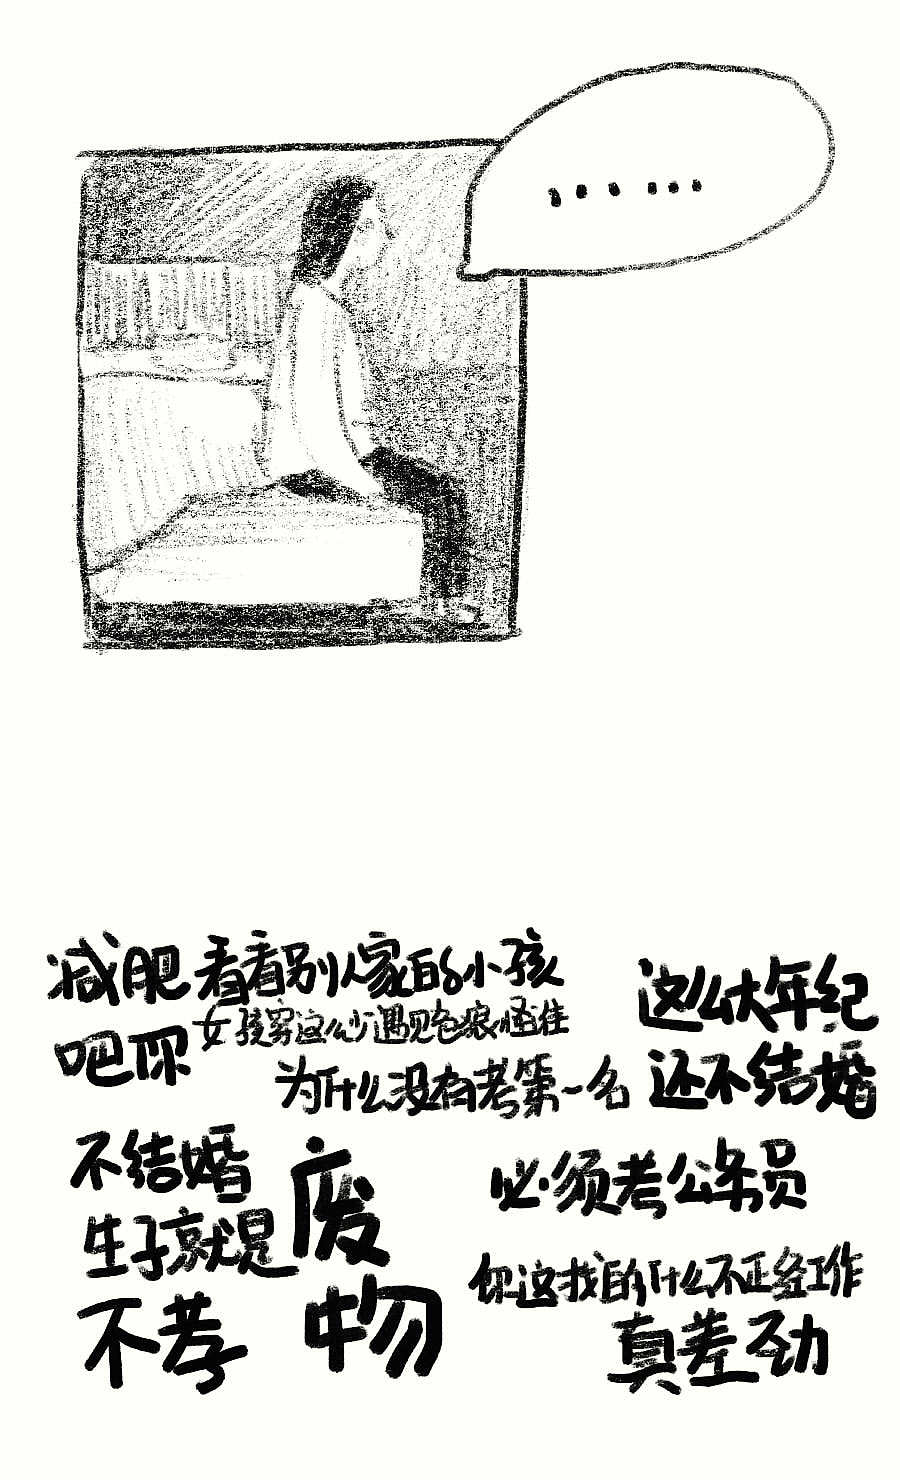 ……
减肥
吧你
看看别人家的小孩
女孩穿这么少遇见色狼怪谁
为什么没有考第一名
这么大年纪
还不结婚
不结婚
生子就是
不孝
废
物
必须考公务员
你这找的什么不正经工作
真差劲